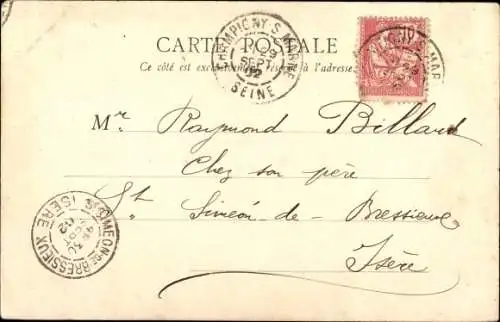 CARTE POSTALE
Ce côté est exclusivement réservé à l'adresse
CHAMPIGNY S. MARNE
29
SEPT
02
SEINE
Mr Raymond Billard
Chez son père
St Siméon-de-Bressieux
Isère
ST SIMEON DE BRESSIEUX
30
02
ISERE